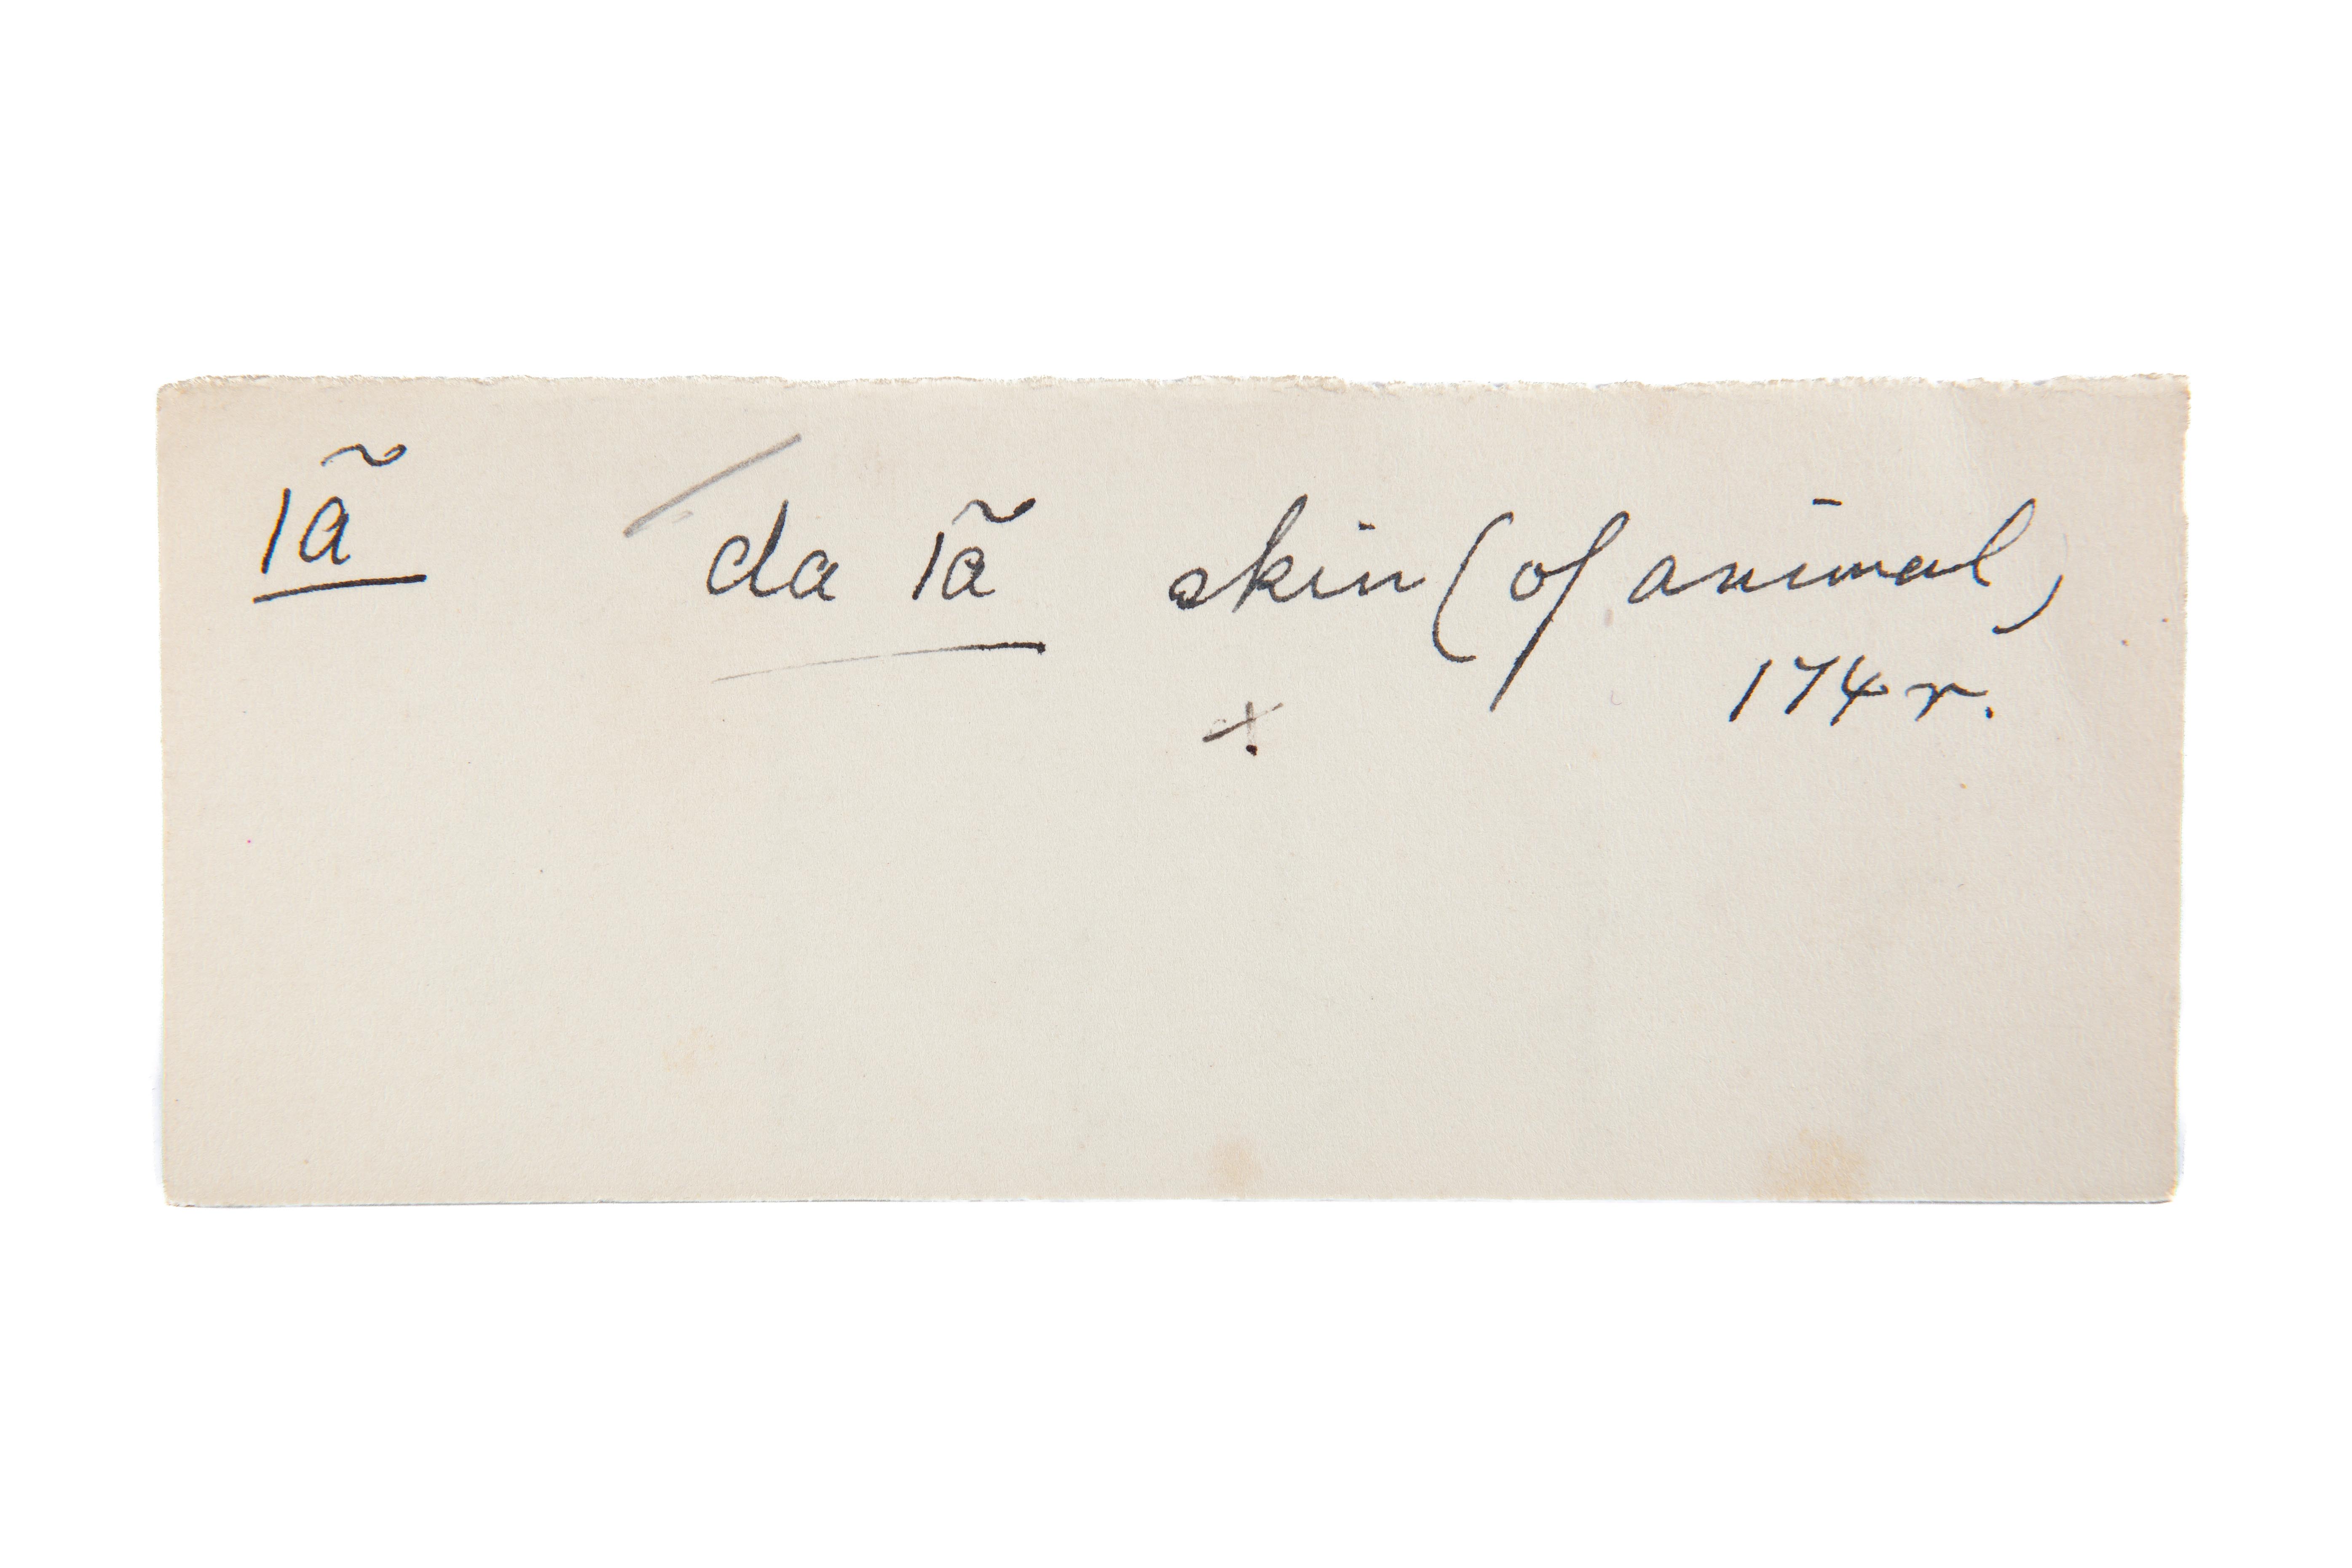 ıã da ıã skin (of animal)
x
174 r.